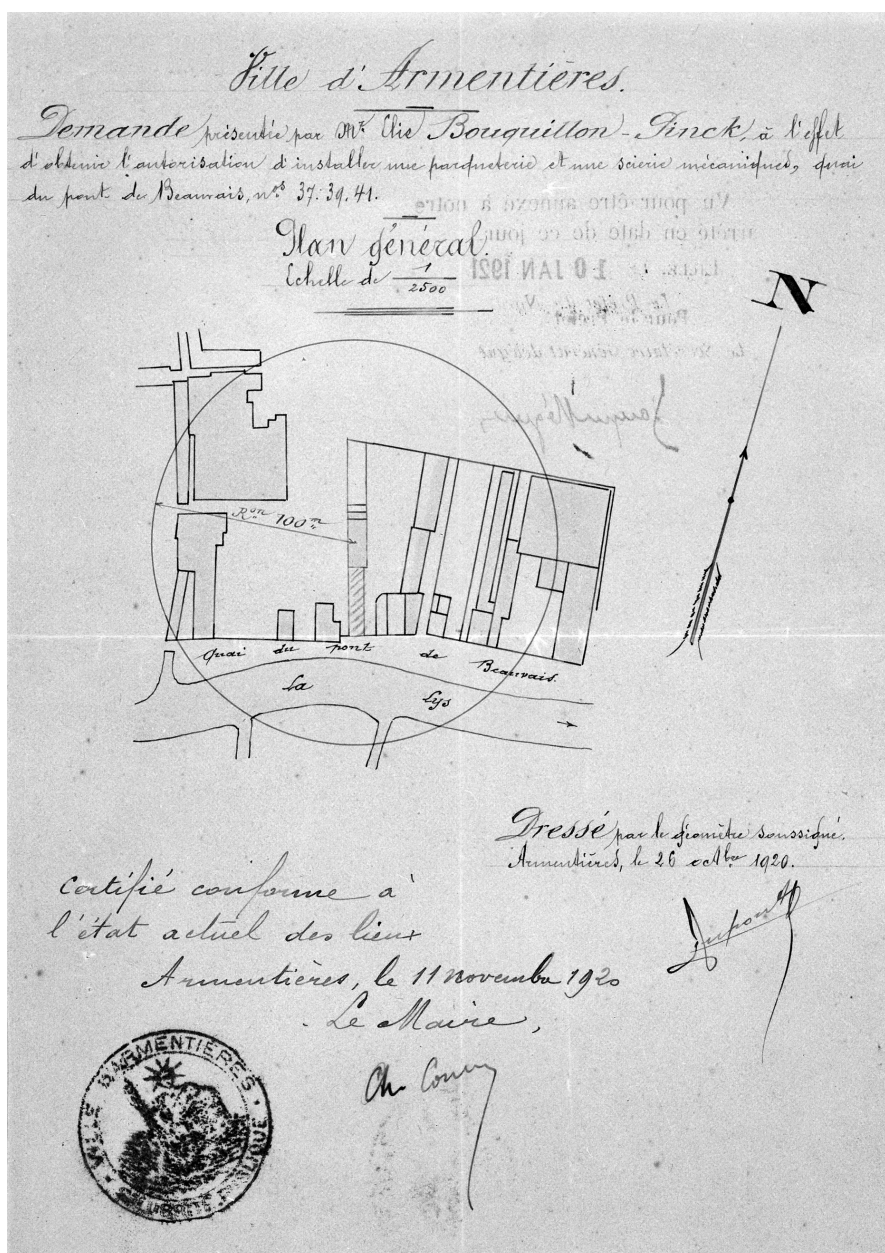 Ville d'Armentières.
Demande présentée par Mr. Elie Bouquillon-Pinck, à l'effet
d'obtenir l'autorisation d'installer une parqueterie et une scierie mécaniques, quai
du pont de Beauvais, nos 37. 39. 41.
Vu pour être annexé à notre
arrêté en date de ce jour
Lille, le 10 JAN 1921
Plan général.
Echelle de 1/2500
Le Préfet du Nord
Pour le Préfet
Le Secrétaire Général délégué
N
Ron 100m
Quai du pont de Beauvais.
La Lys
Dressé par le géomètre soussigné.
Armentières, le 26 octbre 1920.
Dupont
Certifié conforme à
l'état actuel des lieux
Armentières, le 11 novembre 1920
Le Maire,
Ch.
VILLE D'ARMENTIÈRES